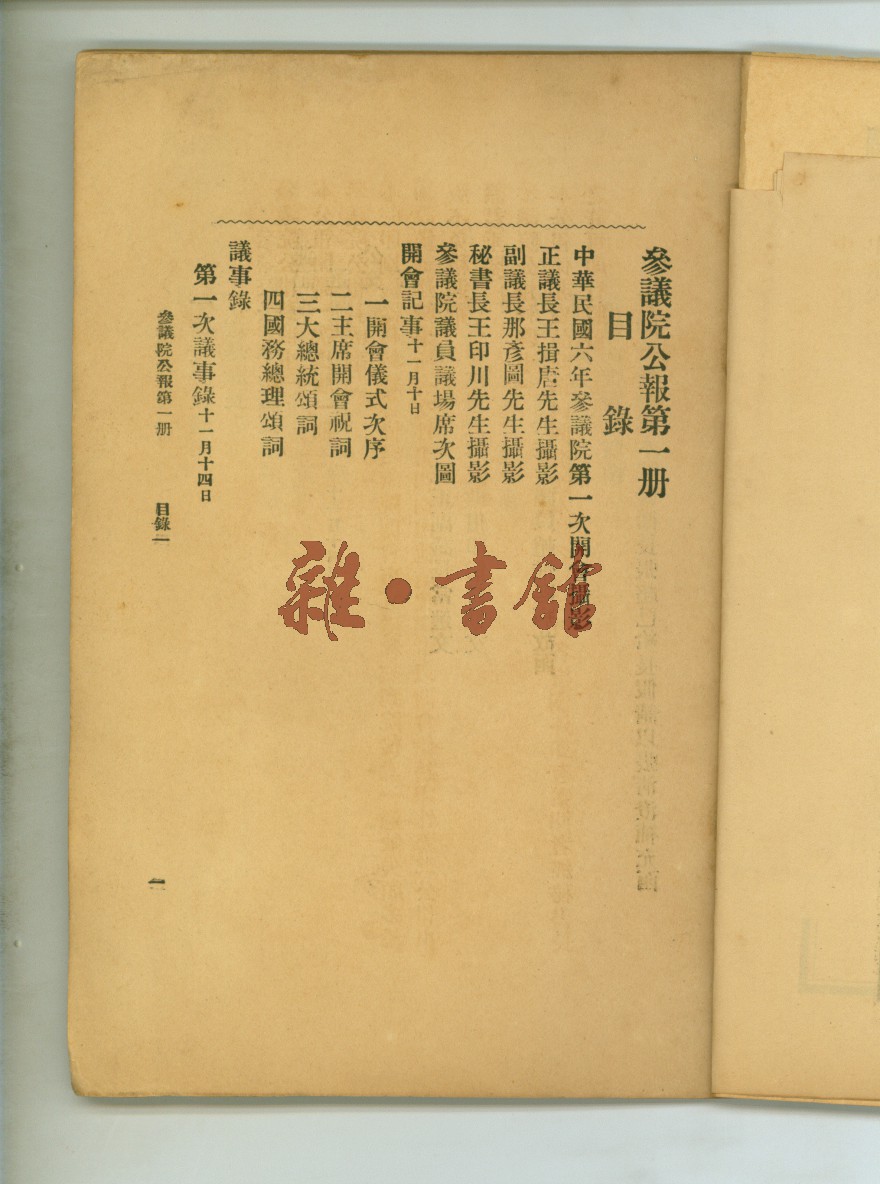 參議院公報第一册
目錄
中華民國六年參議院第一次開會攝影
正議長王揖唐先生攝影
副議長那彥圖先生攝影
秘書長王印川先生攝影
參議院議員議場席次圖
開會記事十一月十日
一開會儀式次序
二主席開會祝詞
三大總統頌詞
四國務總理頌詞
議事錄
第一次議事錄十一月十四日
參議院公報第一册 目錄一
一
雜·書館